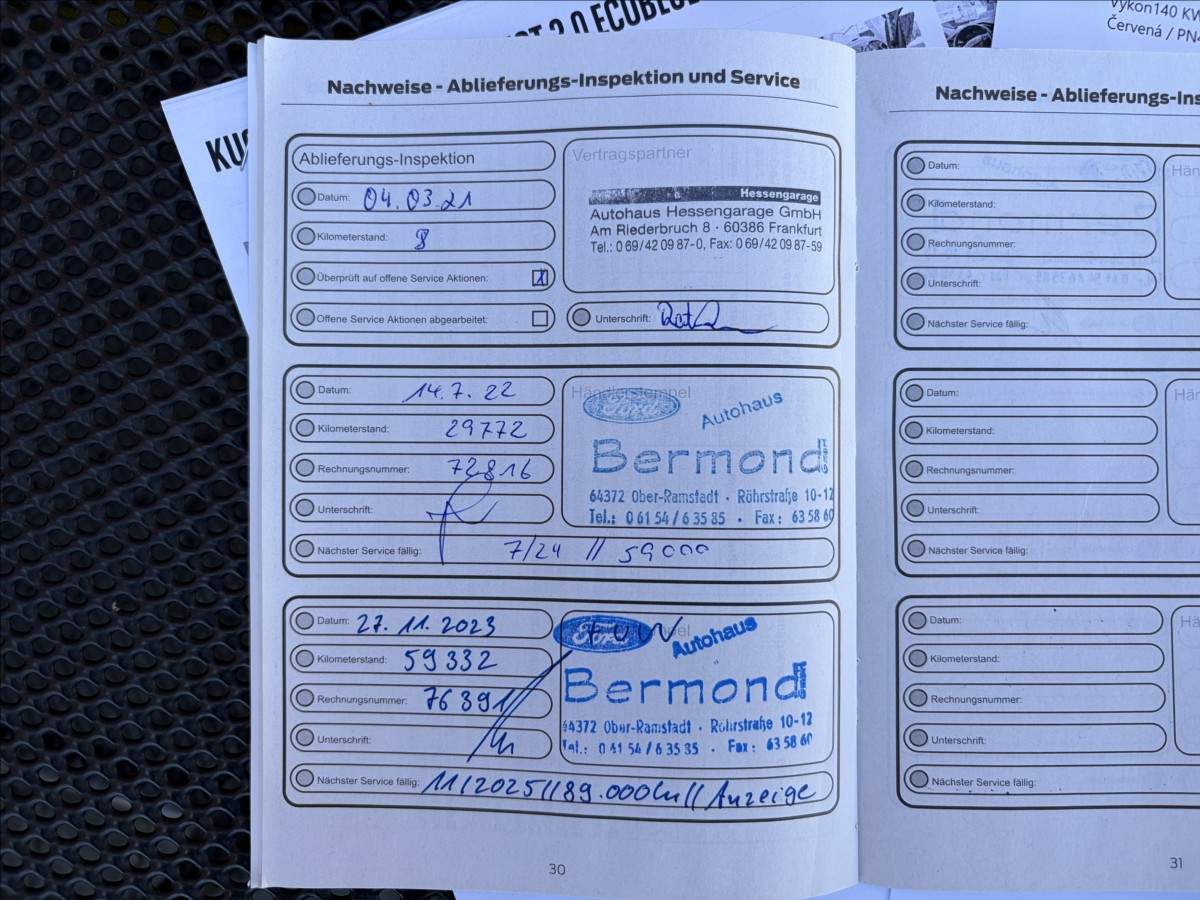 2.0 ECOBLUE
Výkon140 KW
Červená / PN4
KU
Nachweise - Ablieferungs-Inspektion und Service
Ablieferungs-Inspektion
Datum: 04.03.21
Kilometerstand: 8
Überprüft auf offene Service Aktionen: X
Offene Service Aktionen abgearbeitet:
Vertragspartner
Hessengarage
Autohaus Hessengarage GmbH
Am Riederbruch 8 · 60386 Frankfurt
Tel.: 0 69/42 09 87-0, Fax: 0 69/42 09 87-59
Unterschrift:
Datum: 14.7.22
Kilometerstand: 29772
Rechnungsnummer: 72816
Unterschrift:
Nächster Service fällig: 7/24 // 59000
Händlerstempel
Ford
Autohaus
Bermond
64372 Ober-Ramstadt · Röhrstraße 10-12
Tel.: 0 61 54 / 6 35 85 · Fax: 63 58 60
Datum: 27.11.2023
Kilometerstand: 59332
Rechnungsnummer: 76391
Unterschrift:
Nächster Service fällig: 11/2025//89.000km// Anzeige
Ford
Autohaus
Bermond
64372 Ober-Ramstadt · Röhrstraße 10-12
Tel.: 0 61 54 / 6 35 85 · Fax: 63 58 60
30
Nachweise - Ablieferungs-Ins
Datum:
Kilometerstand:
Rechnungsnummer:
Unterschrift:
Nächster Service fällig:
Hän
Datum:
Kilometerstand:
Rechnungsnummer:
Unterschrift:
Nächster Service fällig:
Hän
Datum:
Kilometerstand:
Rechnungsnummer:
Unterschrift:
Nächster Service fällig:
Hä
31